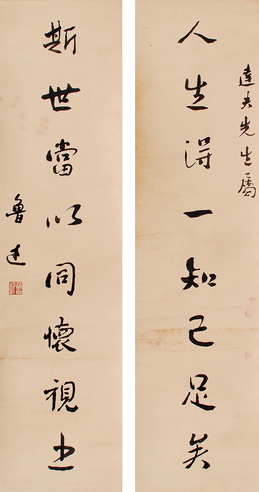 達夫先生屬
人生得一知己足矣
斯世當以同懷視之
魯迅